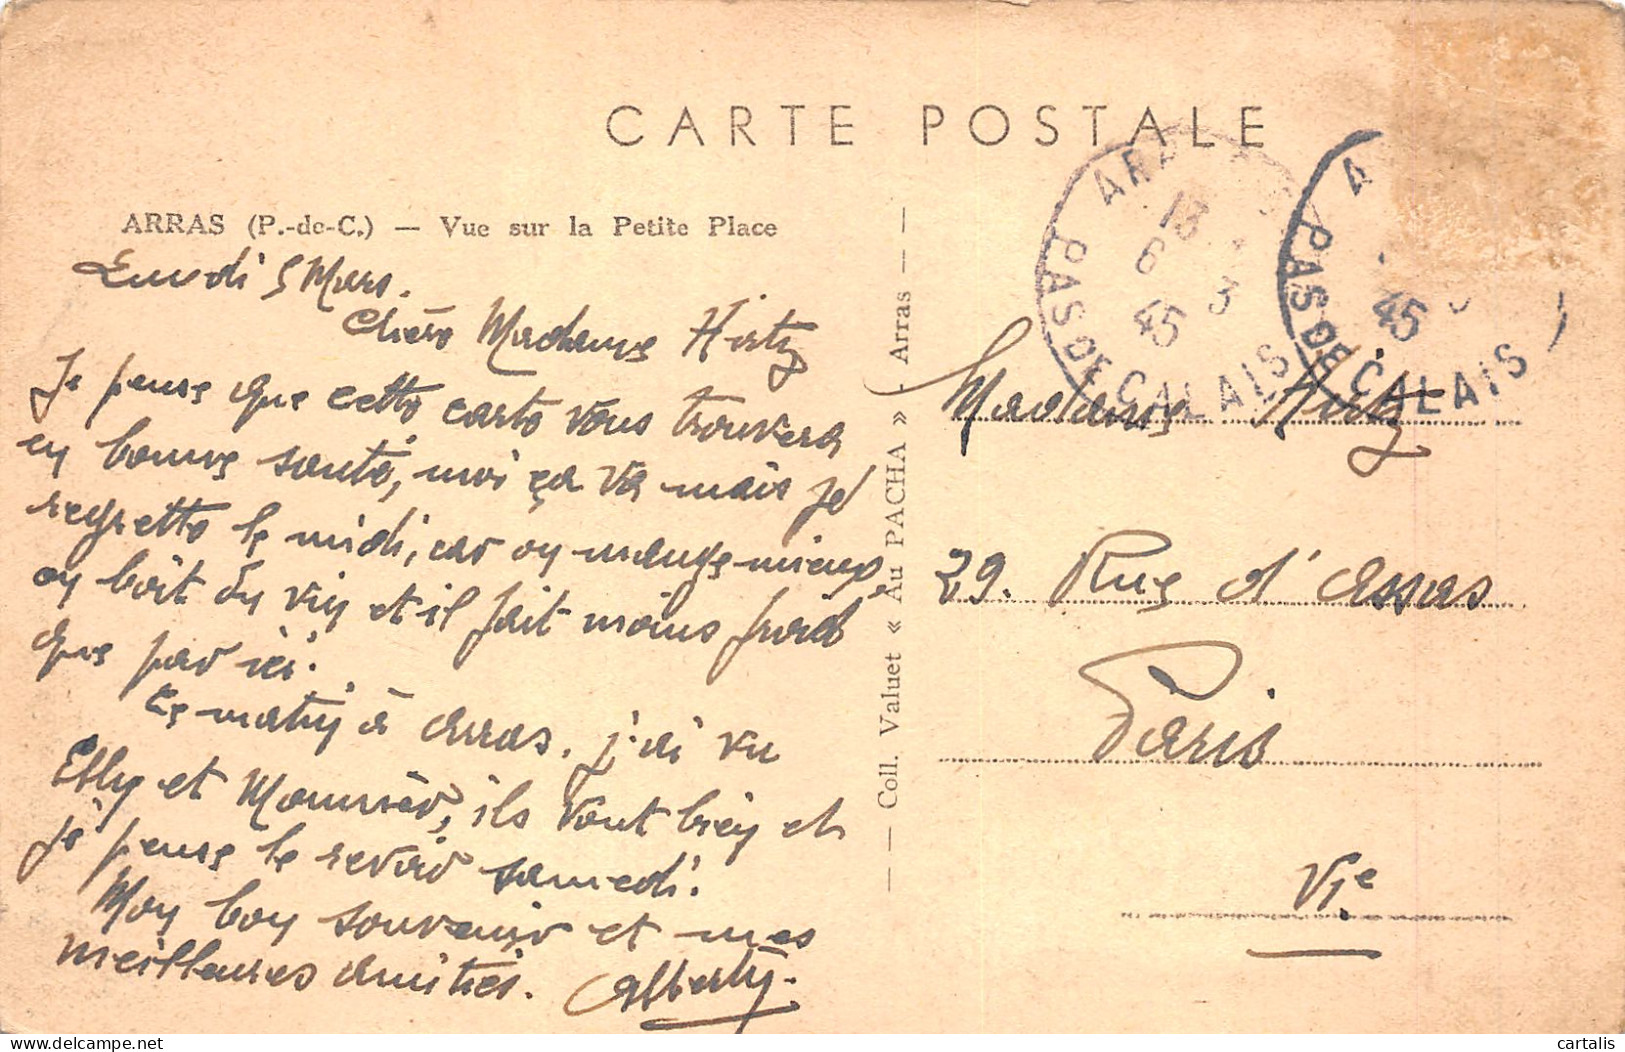 CARTE POSTALE
ARRAS (P.-de-C.) — Vue sur la Petite Place
Lundi 5 Mars.
Chère Madame Hirtz
Je pense que cette carte vous trouvera
en bonne santé, moi ça va mais je
regrette le midi, car on mange mieux,
on boit du vin et il fait moins froid
que par ici.
Ce matin à Arras. j'ai vu
et Mounier, ils vont bien et
je pense le revoir samedi.
Mon bon souvenir et mes
meilleures amitiés.
— Coll. Valuet « Au PACHA » - Arras —
ARRAS
13
6 3
45
PAS DE CALAIS
A
45
PAS DE CALAIS
Madame Hirtz
29. Rue d'Assas
Paris
VIe
cartalis